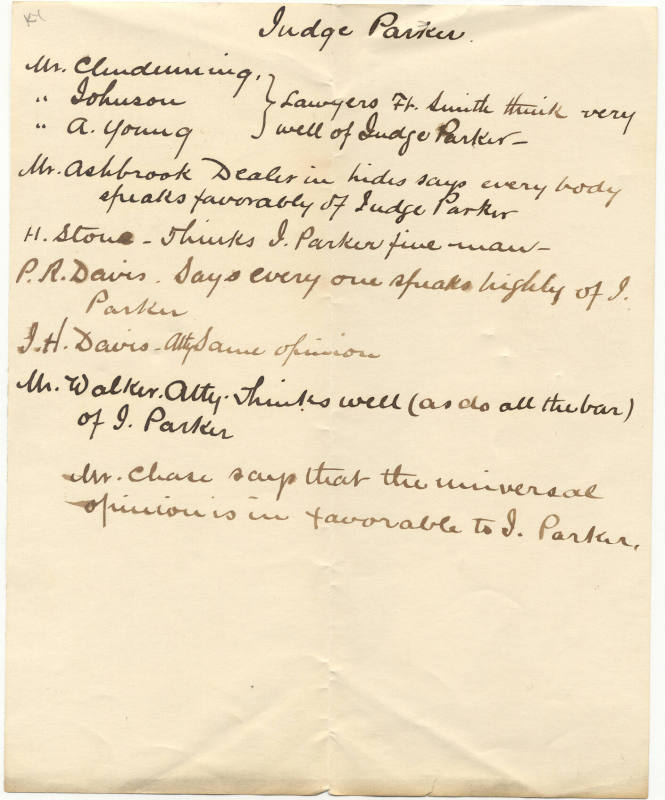 Judge Parker.
Mr. Clendenning,
" Johnson } Lawyers Ft. Smith think very
" A. Young } well of Judge Parker -
Mr. Ashbrook Dealer in hides says every body
speaks favorably of Judge Parker
H. Stone - Thinks J. Parker fine man -
P. R. Davis. Says every one speaks highly of J.
Parker
J. H. Davis - Atty Same opinion
Mr. Walker. Atty. Thinks well (as do all the bar)
of J. Parker
Mr. Chase says that the universal
opinion is in favorable to J. Parker.